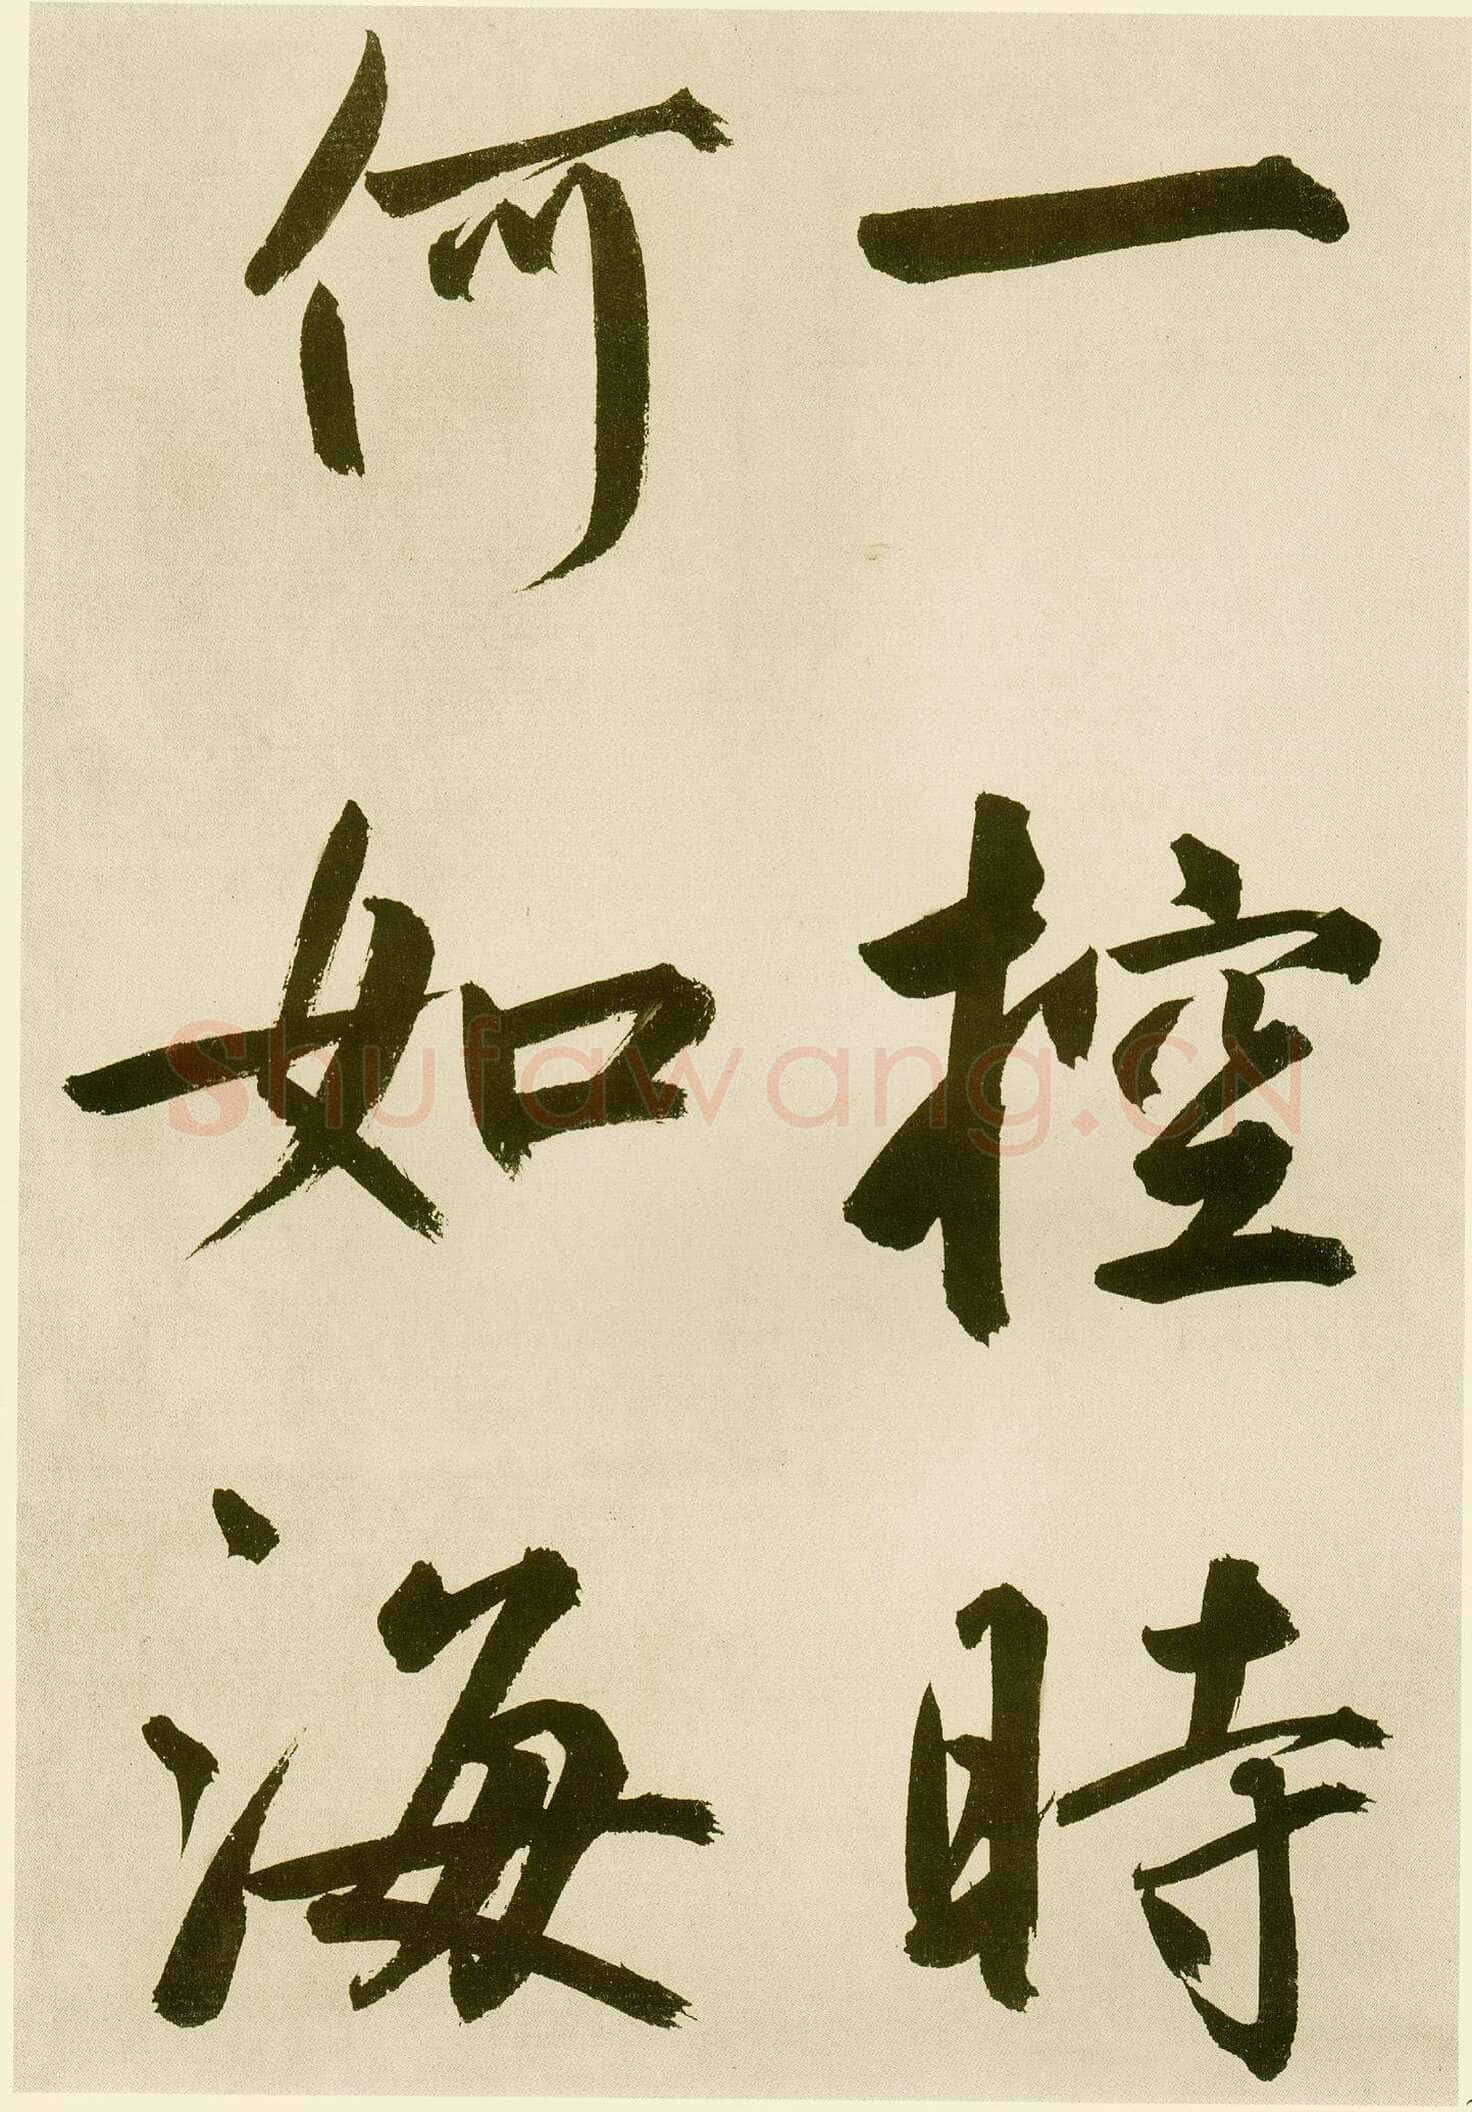 一控時
何如海
Shufawang.CN